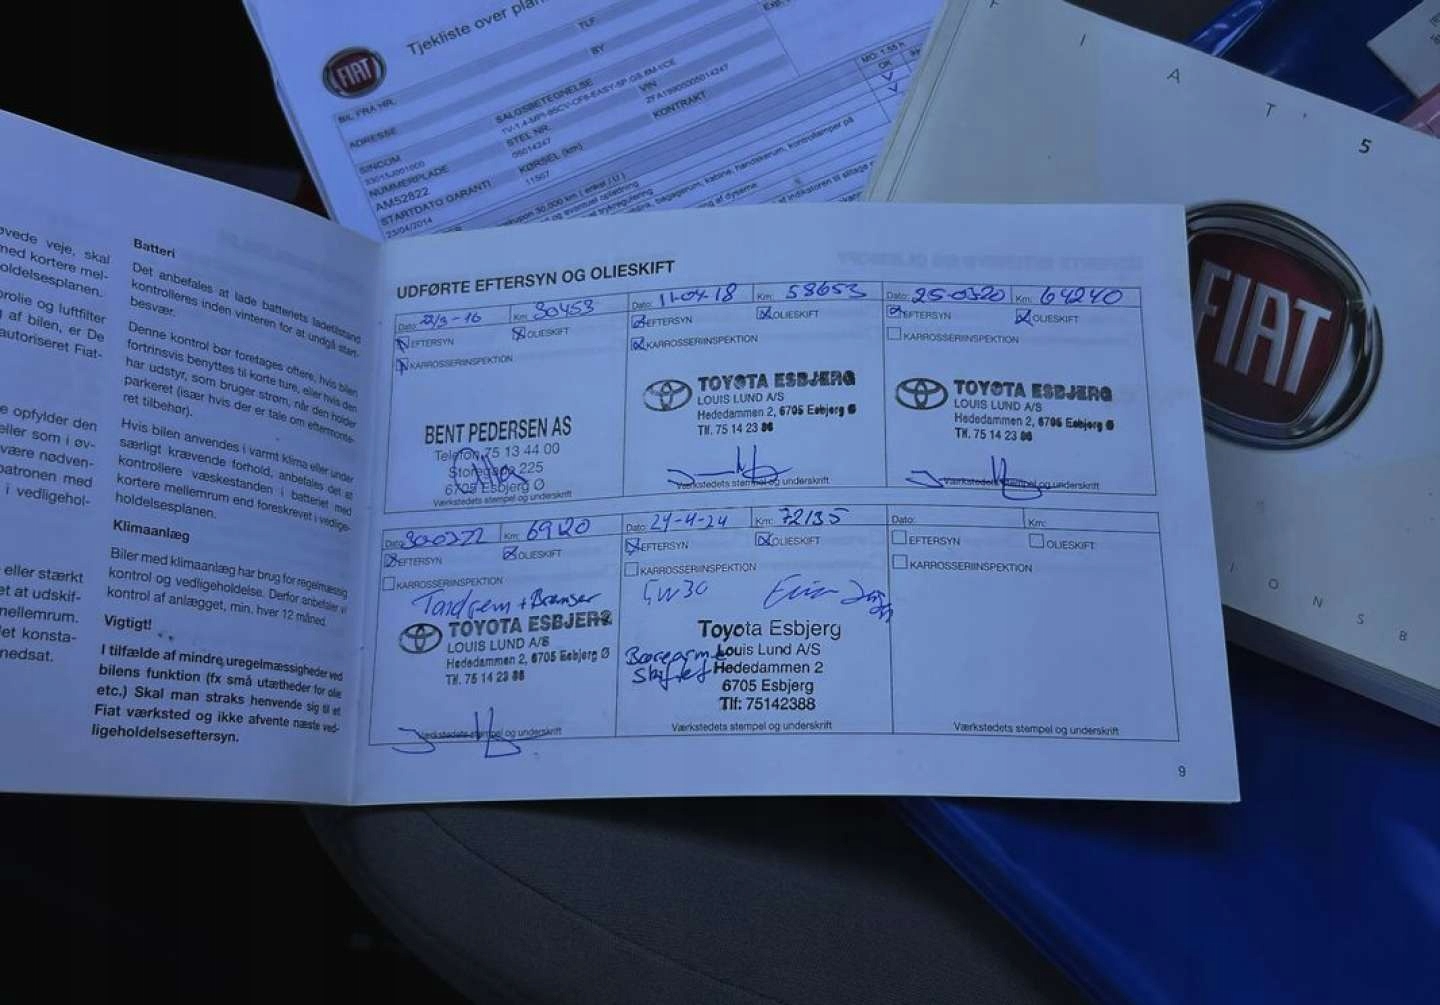 FIAT
Tjekliste over plan
TLF
BIL FRA HR.
BY
ADRESSE
SALGSBETEGNELSE
VIN
SINCOM
STEL NR.
05014247
KONTRAKT
NUMMERPLADE
KØRSEL (km)
AM52822
11507
STARTDATO GARANTI
23/04/2014
MO: 1.55 h
OK
F I A T ' 5
FIAT
I O N S B
øvede veje, skal
med kortere mel-
holdelsesplanen.
orolie og luftfilter
af bilen, er De
autoriseret Fiat-
e opfylder den
eller som i øv-
være nødven-
patronen med
i vedligehol-
eller stærkt
et at udskif-
mellemrum.
let konsta-
nedsat.
Batteri
Det anbefales at lade batteriets ladetilstand
kontrolleres inden vinteren for at undgå start-
besvær.
Denne kontrol bør foretages oftere, hvis bilen
fortrinsvis benyttes til korte ture, eller hvis den
har udstyr, som bruger strøm, når den holder
parkeret (især hvis der er tale om eftermonte-
ret tilbehør).
Hvis bilen anvendes i varmt klima eller under
særligt krævende forhold, anbefales det at
kontrollere væskestanden i batteriet med
kortere mellemrum end foreskrevet i vedlige-
holdelsesplanen.
Klimaanlæg
Biler med klimaanlæg har brug for regelmæssig
kontrol og vedligeholdelse. Derfor anbefaler vi
kontrol af anlægget, min. hver 12 måned.
Vigtigt!
I tilfælde af mindre uregelmæssigheder ved
bilens funktion (fx små utætheder for olie
etc.) Skal man straks henvende sig til et
Fiat værksted og ikke afvente næste ved-
ligeholdelseseftersyn.
UDFØRTE EFTERSYN OG OLIESKIFT
Dato: 22/3-16 Km: 30453
EFTERSYN OLIESKIFT
KARROSSERIINSPEKTION
BENT PEDERSEN AS
Telefon 75 13 44 00
Storegade 225
6705 Esbjerg Ø
Værkstedets stempel og underskrift
Dato: 11-04-18 Km: 58653
EFTERSYN OLIESKIFT
KARROSSERIINSPEKTION
TOYOTA ESBJERG
LOUIS LUND A/S
Hededammen 2, 6705 Esbjerg Ø
Tlf. 75 14 23 88
Værkstedets stempel og underskrift
Dato: 25-0320 Km: 64240
EFTERSYN OLIESKIFT
KARROSSERIINSPEKTION
TOYOTA ESBJERG
LOUIS LUND A/S
Hededammen 2, 6705 Esbjerg Ø
Tlf. 75 14 23 88
Værkstedets stempel og underskrift
Dato: 300322 Km: 69120
EFTERSYN OLIESKIFT
KARROSSERIINSPEKTION
Tandrem + Bremser
TOYOTA ESBJERG
LOUIS LUND A/S
Hededammen 2, 6705 Esbjerg Ø
Tlf. 75 14 23 88
Værkstedets stempel og underskrift
Dato: 24-4-24 Km: 72135
EFTERSYN OLIESKIFT
KARROSSERIINSPEKTION
5W30
Toyota Esbjerg
Bærearme Louis Lund A/S
Skiftet Hededammen 2
6705 Esbjerg
Tlf: 75142388
Værkstedets stempel og underskrift
Dato: Km:
EFTERSYN OLIESKIFT
KARROSSERIINSPEKTION
Værkstedets stempel og underskrift
9